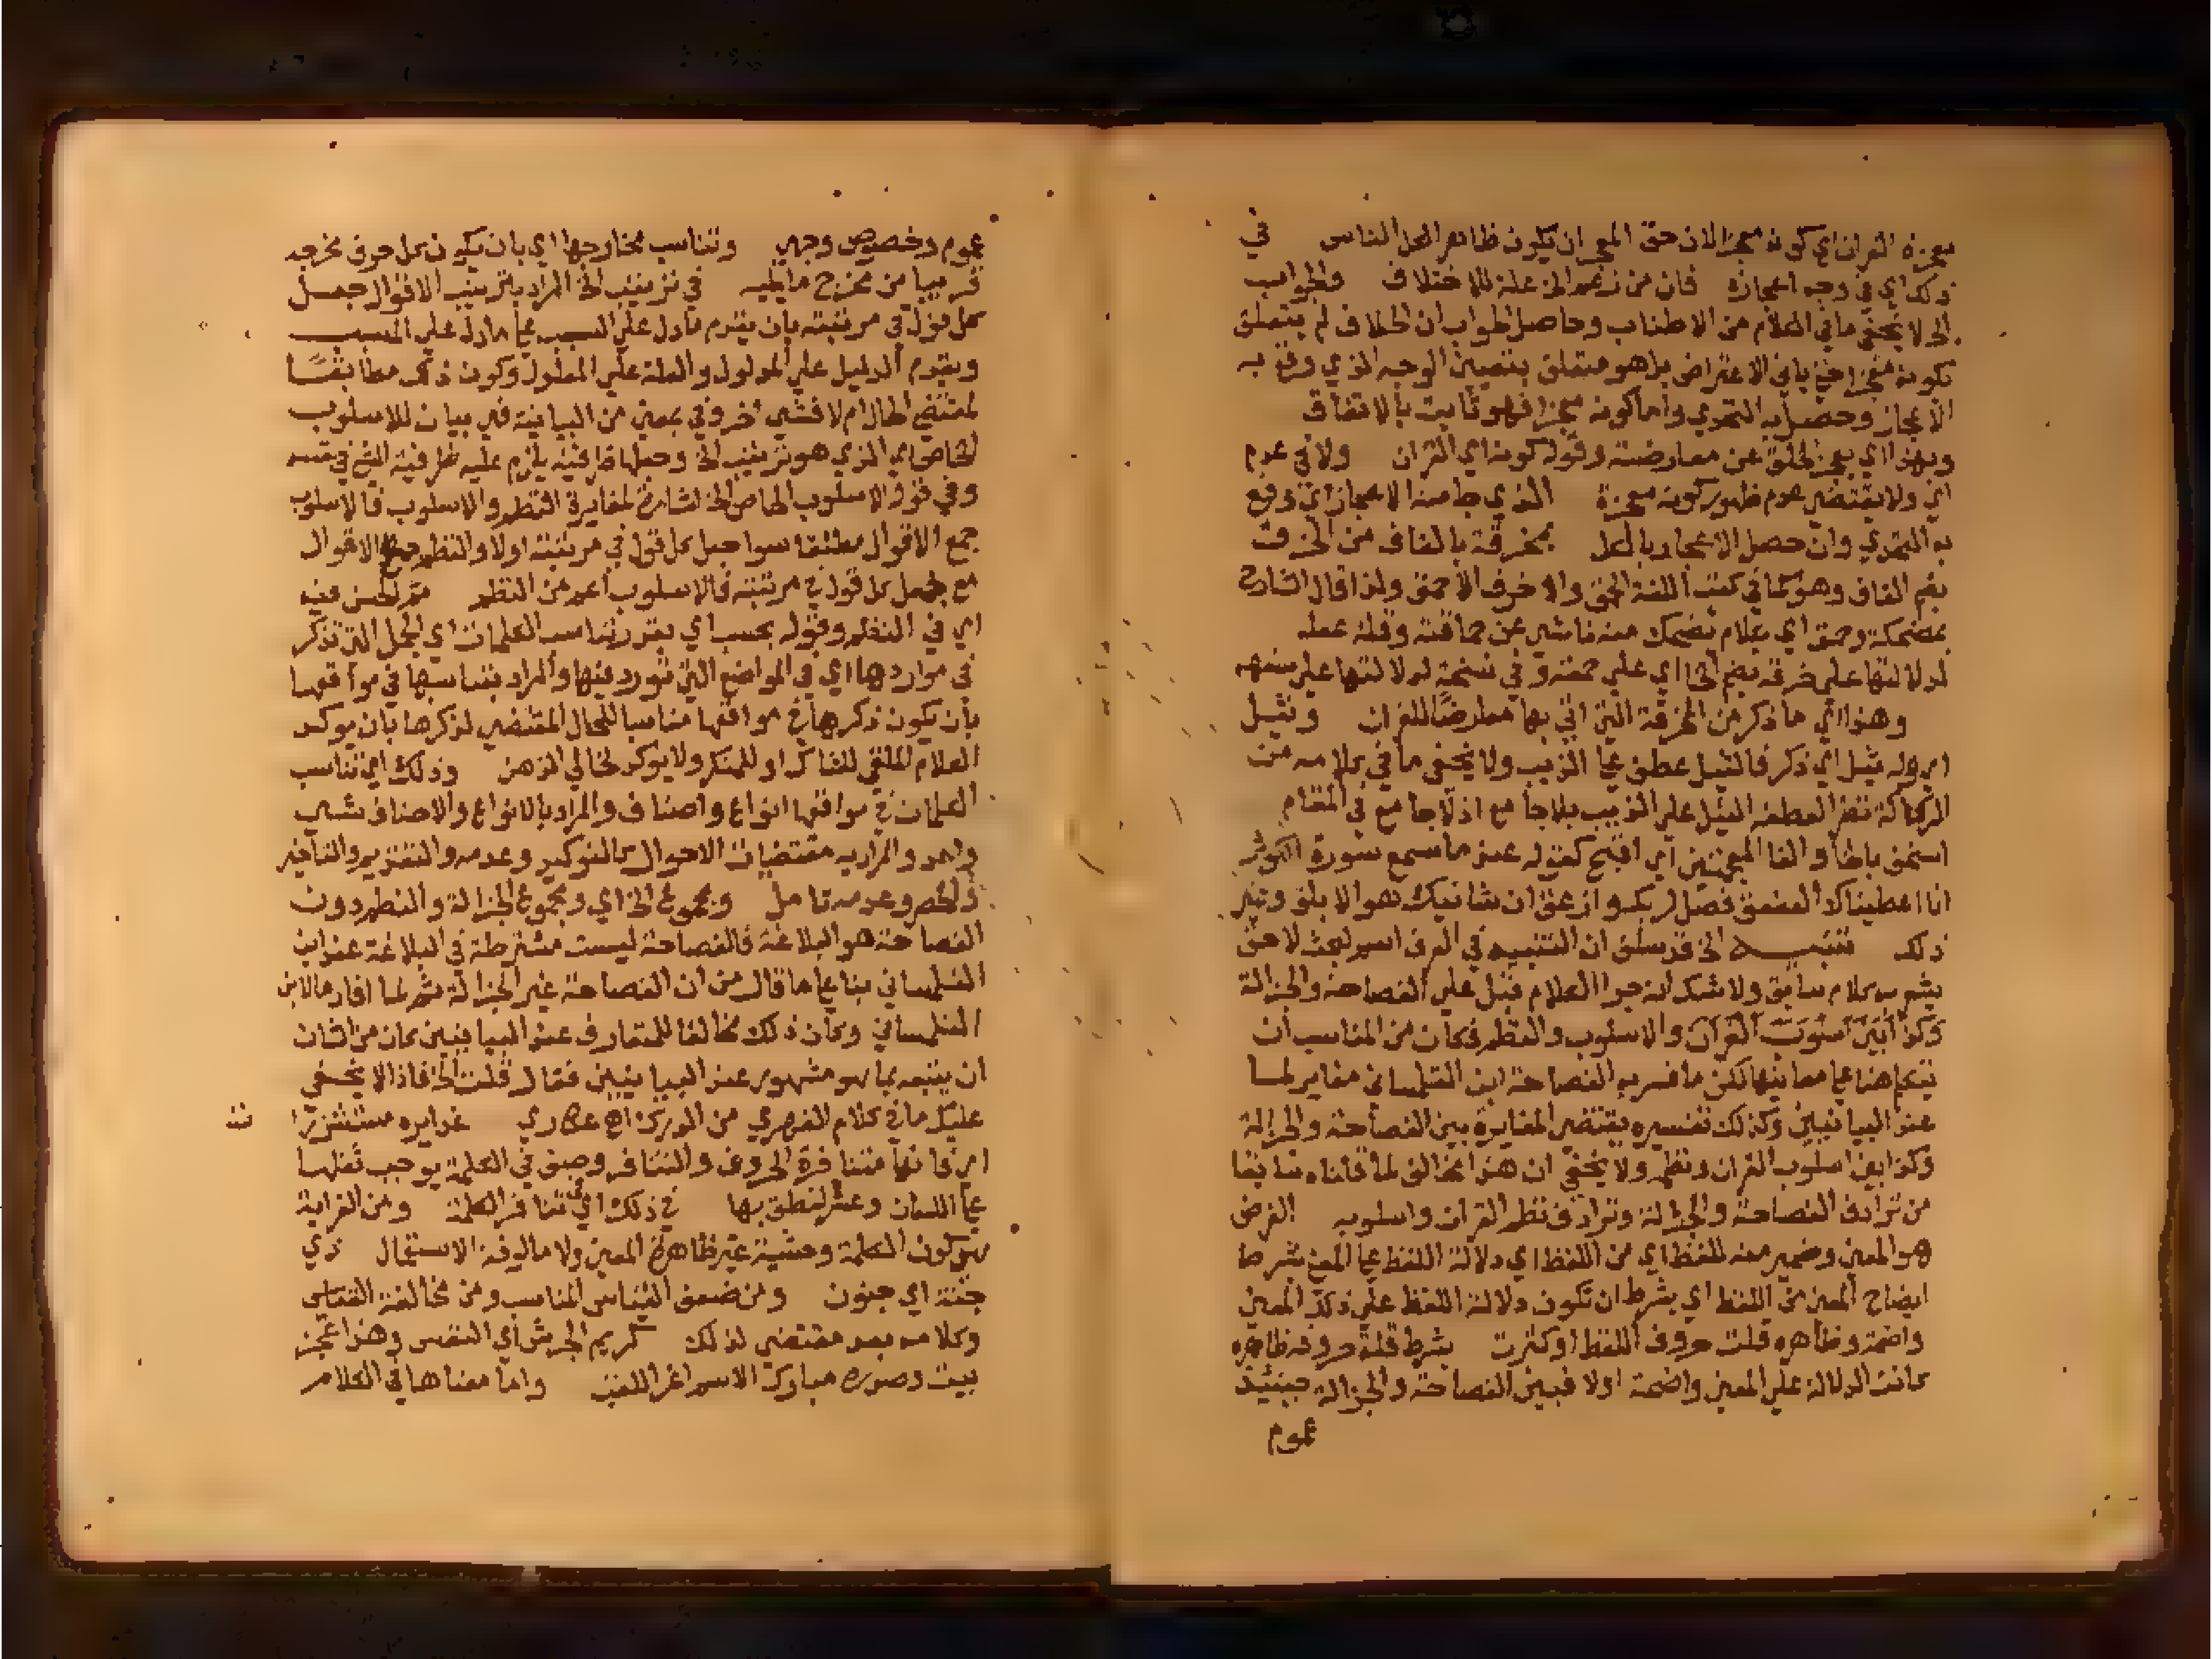 معجزة القران اي كونه معجزا لان حق المعجز ان يكون ظاهرا لكل الناس في
ذلك اي في وجه اعجازه فان من زعم الخ علة للاختلاف والجواب
الخ لا يخفي ما في الكلام من الاطناب وحاصل الجواب ان الخلاف لم يتعلق
بكونه معجزا حتي ياتي الاعتراض بل هو متعلق بتعيين الوجه الذي وقع به
الاعجاز وحصل به التحدي واما كونه معجزا فهو ثابت بالاتفاق
وبهذا اي بعجز الخلق عن معارضته وقوله كونه اي القران ولا في عدم
اي ولا يقتضي عدم ظهور كونه معجزة الذي جا منه الاعجاز اي وقع
به التحدي وان حصل الاعجاز بالكل مخرقة بالقاف من الخرق
بضم القاف وهو كما في كتب اللغة الحمق والاخرق الاحمق ولذا قال الشارح
مضحكة وحمق اي بكلام يضحك منه ناشي عن حماقته وقلة عقله
لدلالتها علي خرقه بضم الخا اي علي حمقه وفي نسخة لدلالتها علي سفهه
وهذا اي ما ذكر من المخرقة التي اتي بها معارضا للقران وثيل
اي وله ثيل اي ذكر فالثيل عطف علي الذنب ولا يخفي ما في كلامه من
الركاكة نظرا لعطفه الثيل علي الذنب بلا جامع اذ لا جامع في المقام
اسخف بالخا والفا المعجمتين اي اقبح كقوله عند ما سمع سورة الكوثر
انا اعطيناك العقعق فصل لربك وازعق ان شانيك هو الابلق وغير
ذلك تنبيه الخ قد سبق ان التنبيه في العرف اسم لبحث لاحق
يشعر به كلام سابق ولا شك انه جرا الكلام قبل علي الفصاحة والجزالة
وكذا بين اسلوب القران والاسلوب والنظم فكان من المناسب ان
يتكلم هنا علي معانيها لكن ما فسر به الفصاحة ابن التلمساني مغاير لما
عند البيانيين وكذلك تفسيره يقتضي المغايرة بين الفصاحة والجزالة
وكذا بين اسلوب القران ونظمه ولا يخفي ان هذا مخالف لما قلناه سابقا
من ترادف الفصاحة والجزالة وترادف نظم القران واسلوبه الغرض
هو المعني وضمير منه للفظ اي من اللفظ اي دلالة اللفظ علي المعني بشرط
ايضاح المعني من اللفظ اي بشرط ان تكون دلالة اللفظ علي ذلك المعني
واضحة وظاهره قلت حروف اللفظ او كثرت بشرط قلة حروفه ظاهره
كانت الدلالة علي المعني واضحة اولا فبين الفصاحة والجزالة حينئذ
عموم
عموم وخصوص وجهي وتناسب مخارجها اي بان يكون كل حرف مخرجه
قريبا من مخرج ما يليه في ترتيب الخ المراد بترتيب الاقوال جعل
كل قول في مرتبته بان يقدم ما دل علي السبب علي ما دل علي المسبب
ويقدم الدليل علي المدلول والعلة علي المعلول وكون ذلك مطابقا
لمقتضي الحال ام لا فشي اخر وفي بمعني من البيانية فهي بيان للاسلوب
الخاص اي الذي هو ترتيب الخ وجعلها ظرفية يلزم عليه ظرفية الشي في نفسه
وفي قوله والاسلوب الخاص الخ اشارة لمغايرة النظم والاسلوب فالاسلوب
جمع الاقوال مطلقا سوا جعل كل قول في مرتبته اولا والنظم جمع الاقوال
مع جعل كل قول في مرتبته فالاسلوب اعم من النظم ثم الحسن فيه
اي في النظم وقوله بحسب اي بقدر تناسب الكلمات اي الجمل التي تذكر
في مواردها اي في المواضع التي تورد فيها والمراد بتناسبها في مواقعها
بان يكون ذكرها في مواقعها مناسبا للحال المقتضي لذكرها بان يوكد
الكلام الملقي للشاك او للمنكر ولا يوكد لخالي الذهن وذلك اي تناسب
الكلمات في مواقعها انواع واصناف والمراد بالانواع والاصناف شي
واحد والمراد به مقتضيات الاحوال كالتوكيد وعدمه والتقديم والتاخير
والحصر وعدمه تامل ومجموع الخ اي ومجموع الجزالة والنظم دون
الفصاحة هو البلاغة فالفصاحة ليست مشترطة في البلاغة عند ابن
التلمساني بنا علي ما قال من ان الفصاحة غير الجزالة ثم لما افاد ما لابن
التلمساني وكان ذلك مخالفا للمتعارف عند البيانيين كان من الشان
ان يتبعه بما هو مشهور عند البيانيين فقال قلت الخ فاذا لا يخفي
عليك ما في كلام الفهري من الدرك اه عكاري غدايره مستشزرا
ت
اي فانها متنافرة الحروف والتنافر وصف في الكلمة يوجب ثقلها
علي اللسان وعسر النطق بها في ذلك اي تنافر الكلمة ومن الغرابة
هي كون الكلمة وحشية غير ظاهرة المعني ولا مالوفة الاستعمال ذي
جنة اي جنون ومن ضعف القياس المناسب ومن مخالفة القياس
وكلامه بعد مقتضي لذلك كريم الجرشي اي النفس وهذا عجز
بيت وصدره مبارك الاسم اغر اللقب واما معناها في الكلام